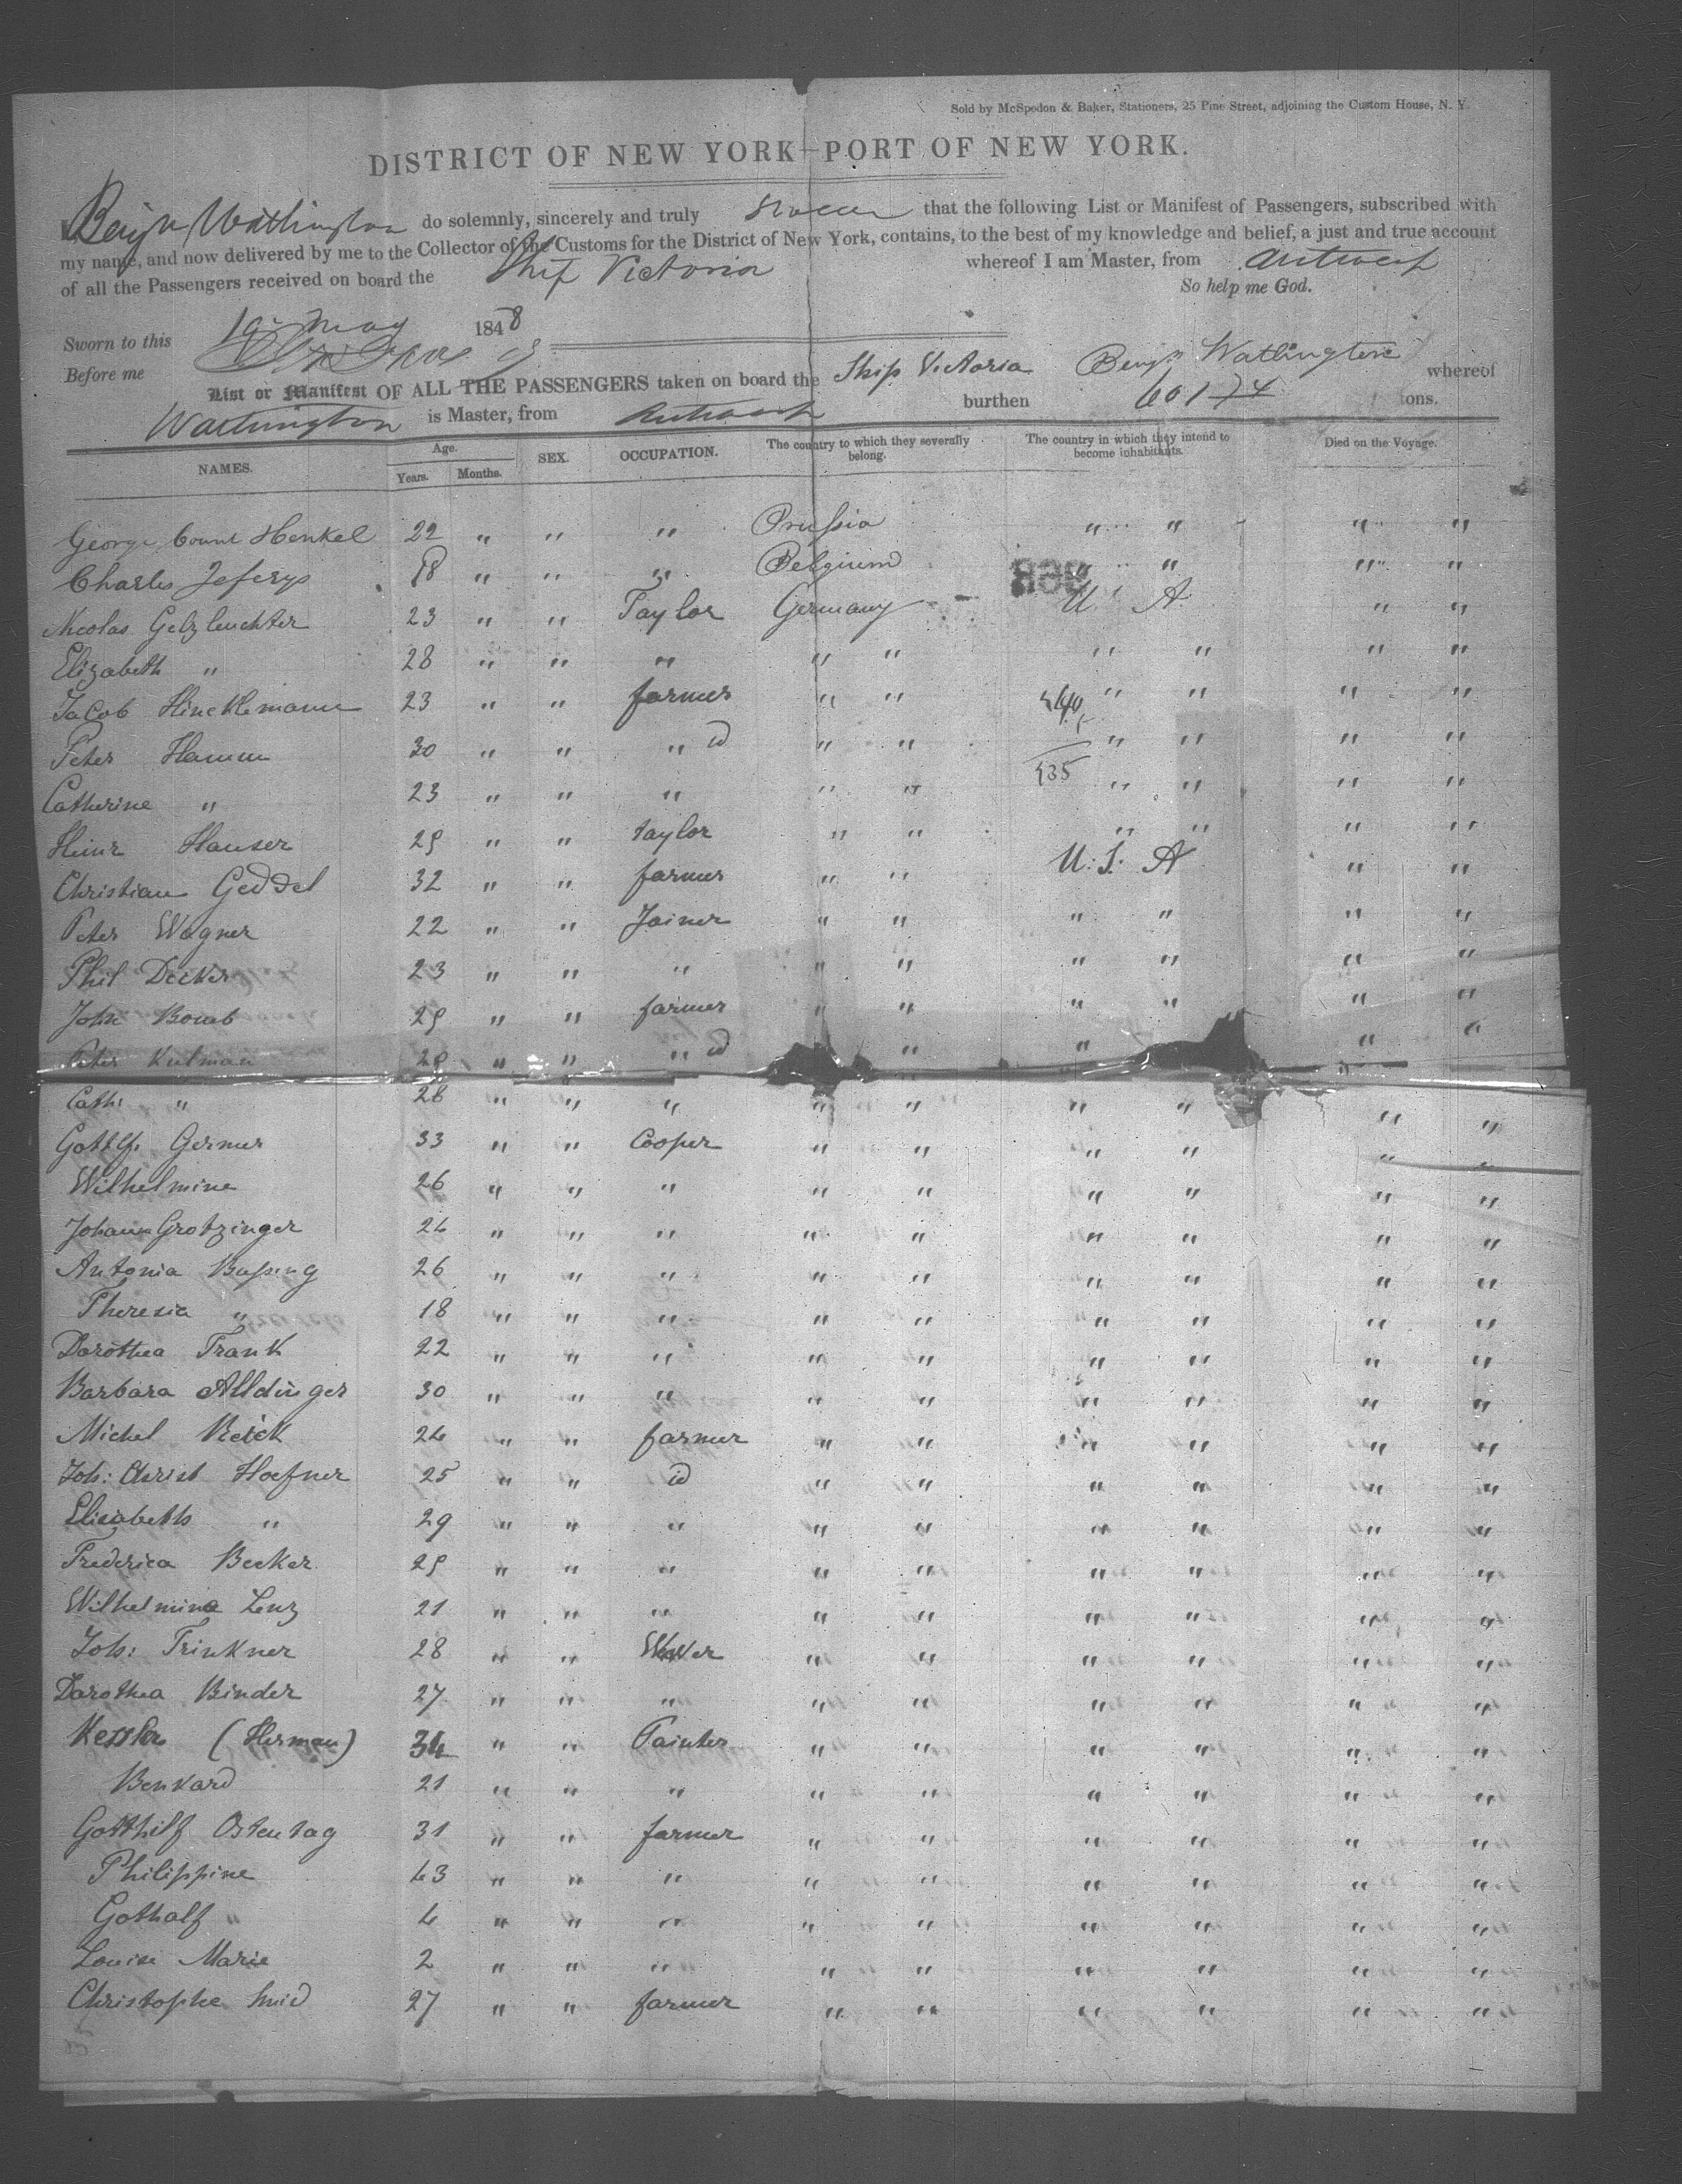 Sold by McSpedon & Baker, Stationers, 25 Pine Street, adjoining the Custom House, N. Y.
DISTRICT OF NEW YORK—PORT OF NEW YORK.
I, Benjn Watlington do solemnly, sincerely and truly swear that the following List or Manifest of Passengers, subscribed with
my name, and now delivered by me to the Collector of the Customs for the District of New York, contains, to the best of my knowledge and belief, a just and true account
of all the Passengers received on board the Ship Victoria whereof I am Master, from Antwerp
So help me God.
Sworn to this 19 May 1848
Before me
List or Manifest OF ALL THE PASSENGERS taken on board the Ship Victoria Benjn Watlington whereof
Watlington is Master, from Antwerp burthen 601 74 tons.
NAMES. Age. Years. Months. SEX. OCCUPATION. The country to which they severally belong. The country in which they intend to become inhabitants. Died on the Voyage.
George Count Henkel 22 " " " Prussia " " " "
Charles Jeferys 18 " " " Belgium " " " "
868
Nicolas Gelzleuchter 23 " " Taylor Germany U A " "
Elizabeth " 28 " " " " " " " " "
Jacob Hincklemann 23 " " farmer " " " " " "
Peter Hamm 30 " " " id " " " " " "
435
Catherine " 23 " " " " " " " " "
Heinr Hauser 29 " " taylor " " " " " "
Christian Geddel 32 " " farmer " " U. S. A " "
Peter Wagner 22 " " Joiner " " " " " "
Phil Decker 23 " " " " " " " " "
John Bomb 29 " " farmer " " " " " "
Peter Kulman 28 " " " id " " " "
Cath: " 28 " " " " " " " " "
Gottlf. Germer 33 " " Cooper " " " " " "
Wilhelmine 26 " " " " " " " " "
Johann Grotzinger 24 " " " " " " " " "
Antonia Bussing 26 " " " " " " " " "
Theresia " 18 " " " " " " " " "
Dorothea Frank 22 " " " " " " " " "
Barbara Alldinger 30 " " " " " " " " "
Michel Reick 24 " " farmer " " " " " "
Joh: Christ Hoefner 25 " " id " " " " " "
Elisabeth " 29 " " " " " " " " "
Frederica Becker 29 " " " " " " " " "
Wilhelmina Lenz 21 " " " " " " " " "
Joh: Trinkner 28 " " " " " " " "
Dorothea Binder 27 " " " " " " " " "
Kessler (Herman) 34 " " Painter " " " " " "
Benkard 21 " " " " " " " " "
Gotthilf Ostentag 31 " " farmer " " " " " "
Philippine 43 " " " " " " " " "
Gothalf " 4 " " " " " " " " "
Louise Marie 2 " " " " " " " " "
Christophe Smid 27 " " farmer " " " " " "